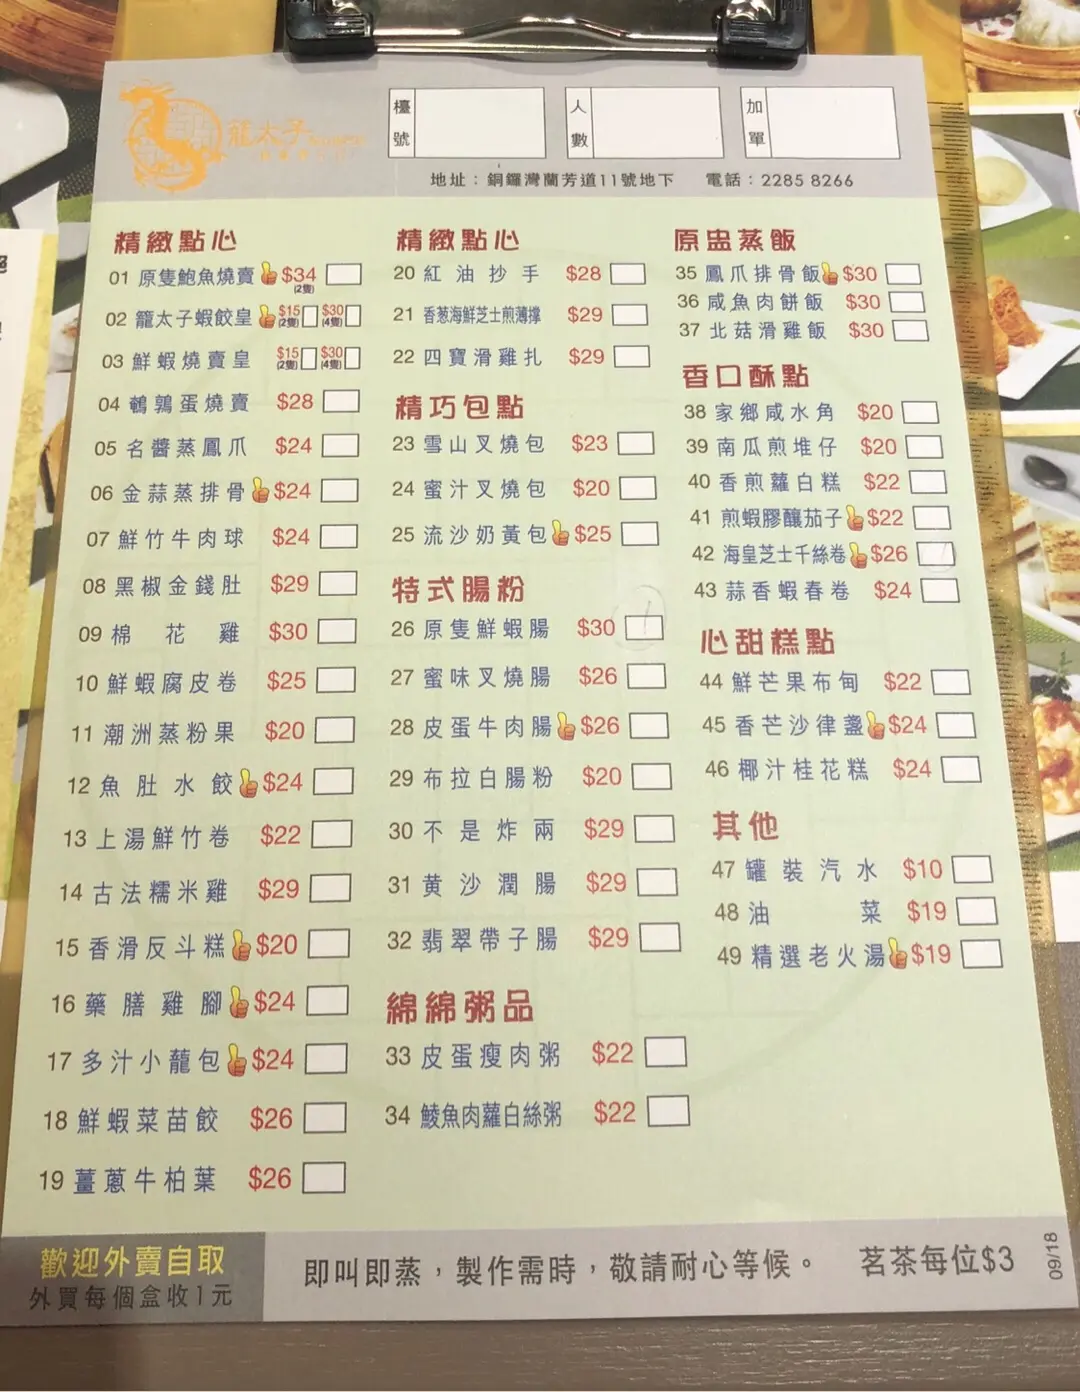 籠太子
檯號
人數
加單
地址：銅鑼灣蘭芳道11號地下 電話：2285 8266
精緻點心
01 原隻鮑魚燒賣 $34 (2隻)
02 籠太子蝦餃皇 $15 (2隻) $30 (4隻)
03 鮮蝦燒賣皇 $15 (2隻) $30 (4隻)
04 鵪鶉蛋燒賣 $28
05 名醬蒸鳳爪 $24
06 金蒜蒸排骨 $24
07 鮮竹牛肉球 $24
08 黑椒金錢肚 $29
09 棉花雞 $30
10 鮮蝦腐皮卷 $25
11 潮洲蒸粉果 $20
12 魚肚水餃 $24
13 上湯鮮竹卷 $22
14 古法糯米雞 $29
15 香滑反斗糕 $20
16 藥膳雞腳 $24
17 多汁小蘢包 $24
18 鮮蝦菜苗餃 $26
19 薑蔥牛柏葉 $26
精緻點心
20 紅油抄手 $28
21 香葱海鮮芝士煎薄撐 $29
22 四寶滑雞扎 $29
精巧包點
23 雪山叉燒包 $23
24 蜜汁叉燒包 $20
25 流沙奶黃包 $25
特式腸粉
26 原隻鮮蝦腸 $30
27 蜜味叉燒腸 $26
28 皮蛋牛肉腸 $26
29 布拉白腸粉 $20
30 不是炸兩 $29
31 黄沙潤腸 $29
32 翡翠帶子腸 $29
綿綿粥品
33 皮蛋瘦肉粥 $22
34 鯪魚肉蘿白絲粥 $22
原盅蒸飯
35 鳳爪排骨飯 $30
36 咸魚肉餅飯 $30
37 北菇滑雞飯 $30
香口酥點
38 家鄉咸水角 $20
39 南瓜煎堆仔 $20
40 香煎蘿白糕 $22
41 煎蝦膠釀茄子 $22
42 海皇芝士千絲卷 $26
43 蒜香蝦春卷 $24
心甜糕點
44 鮮芒果布甸 $22
45 香芒沙律盞 $24
46 椰汁桂花糕 $24
其他
47 罐裝汽水 $10
48 油菜 $19
49 精選老火湯 $19
歡迎外賣自取
外買每個盒收1元
即叫即蒸，製作需時，敬請耐心等候。 茗茶每位$3
09/18